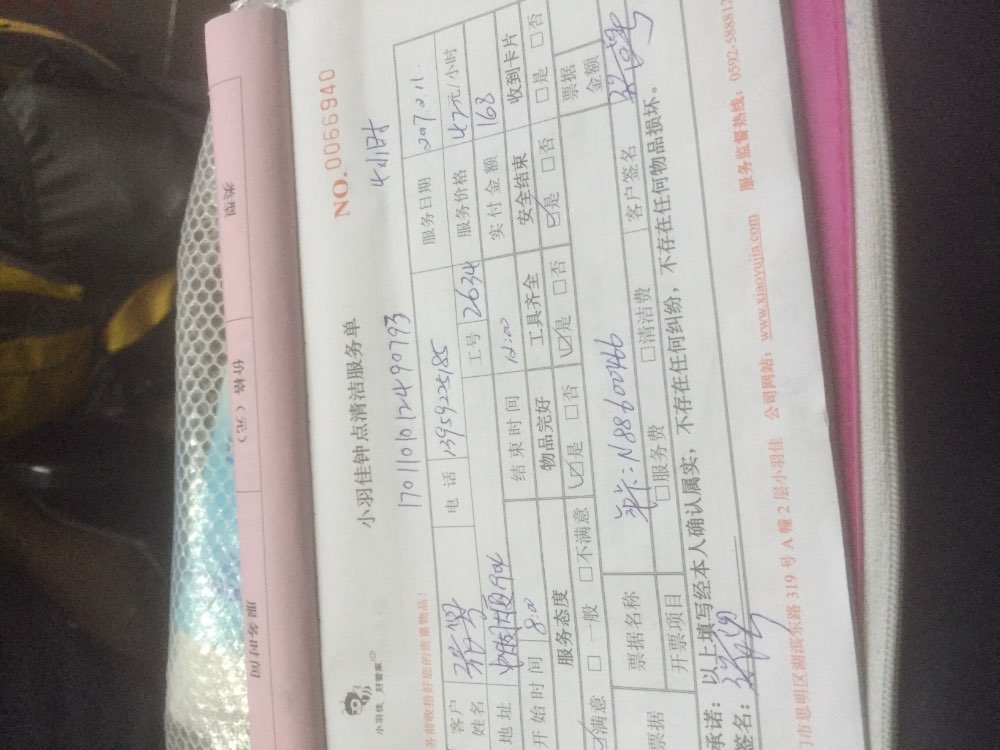 类型
价格（元）
服务时间
小羽佳 好管家
小羽佳钟点清洁服务单
NO.0066940
1701101012490793 4小时
务前收拾好您的贵重物品！
客户姓名
电话 13959225185
服务日期 2017.2.11.
地址
工号 2634
服务价格 42元/小时
开始时间 8:00
结束时间 12:00
实付金额 168
服务态度 物品完好 工具齐全 安全结束 收到卡片
☑满意 □一般 □不满意 ☑是 □否 ☑是 □否 ☑是 □否 □是 □否
票据
票据名称
票据金额
开票项目 □服务费 □清洁费
客户签名
承诺：以上填写经本人确认属实，不存在任何纠纷，不存在任何物品损坏。
签名：
门市思明区湖滨东路 319 号 A 幢 2 层小羽佳 公司网站：www.xiaoyujia.com 服务监督热线：0592-588812